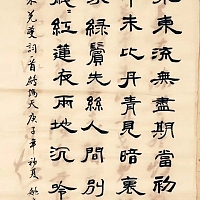 水東流無盡期當初
中未比丹青見暗裏
未綠鬢先絲人間別
紅蓮夜兩地沉吟
姜夔詞首鷓鴣天庚子年初夏